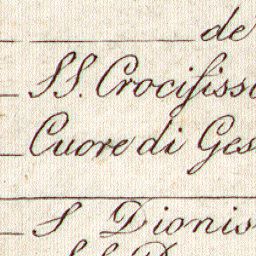 de
SS. Crocifiss
Cuore di Ges
S Dionis